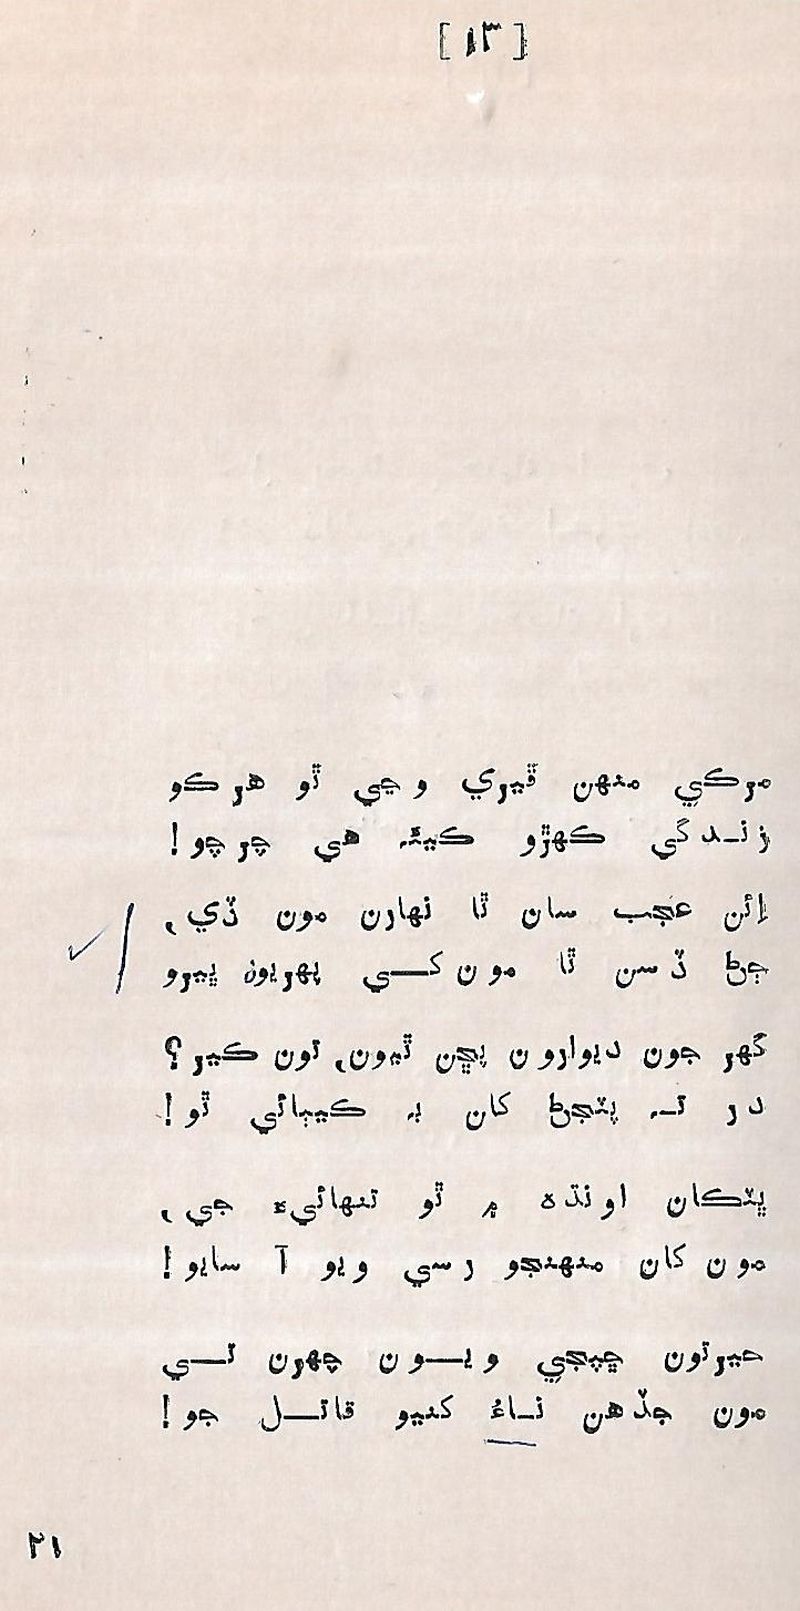 [۱۳]
مرڪي منهن ڦيري وڃي ٿو هرڪو
زندگي ڪهڙو ڪيئہ هي چرچو!
إئن عجب سان ٿا نهارن مون ڏي،
ڄڻ ڏسن ٿا مون کي پهريون ڀيرو
گهر جون ديوارون پڇن ٿيون، تون ڪير؟
در تہ پٽجڻ کان بہ ڪيٻائي ٿو!
ڀٽڪان اونڌه ۾ ٿو تنهائيءَ جي،
مون کان منهنجو رسي ويو آ سايو!
حيرتون ڇپجي ويون چهرن تي
مون جڏهن ناءُ کنيو قاتل جو!
۲۱